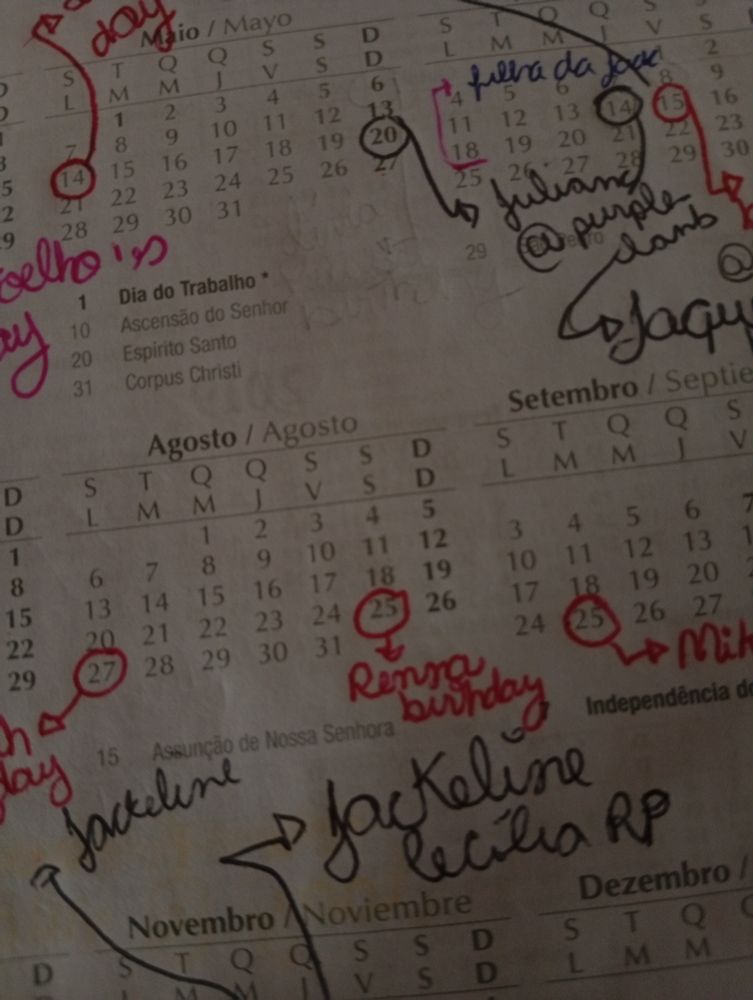 day
Maio / Mayo
S T Q Q S S D
L M M J V S D
1 2 3 4 5 6
7 8 9 10 11 12 13
14 15 16 17 18 19 20
21 22 23 24 25 26 27
28 29 30 31
1 Dia do Trabalho *
10 Ascensão do Senhor
20 Espirito Santo
31 Corpus Christi
S T Q Q S S
L M M J V S
1 2
4 5 6 8 9
11 12 13 14 15 16
18 19 20 21 22 23
25 26 27 28 29 30
filha da
Juliana
@ purple
29
@
Agosto / Agosto
S T Q Q S S D
L M M J V S D
1 2 3 4 5
6 7 8 9 10 11 12
13 14 15 16 17 18 19
20 21 22 23 24 25 26
27 28 29 30 31
Renna
birthday
15 Assunção de Nossa Senhora
D
D
1
8
15
22
29
Setembro / Septie
S T Q Q S
L M M J V
3 4 5 6 7
10 11 12 13
17 18 19 20
24 25 26 27
Independência do
day
Jackeline
Jackeline
Cecília RP
Novembro / Noviembre
D S T Q Q S S D
M M J V S D
Dezembro /
S T Q
L M M